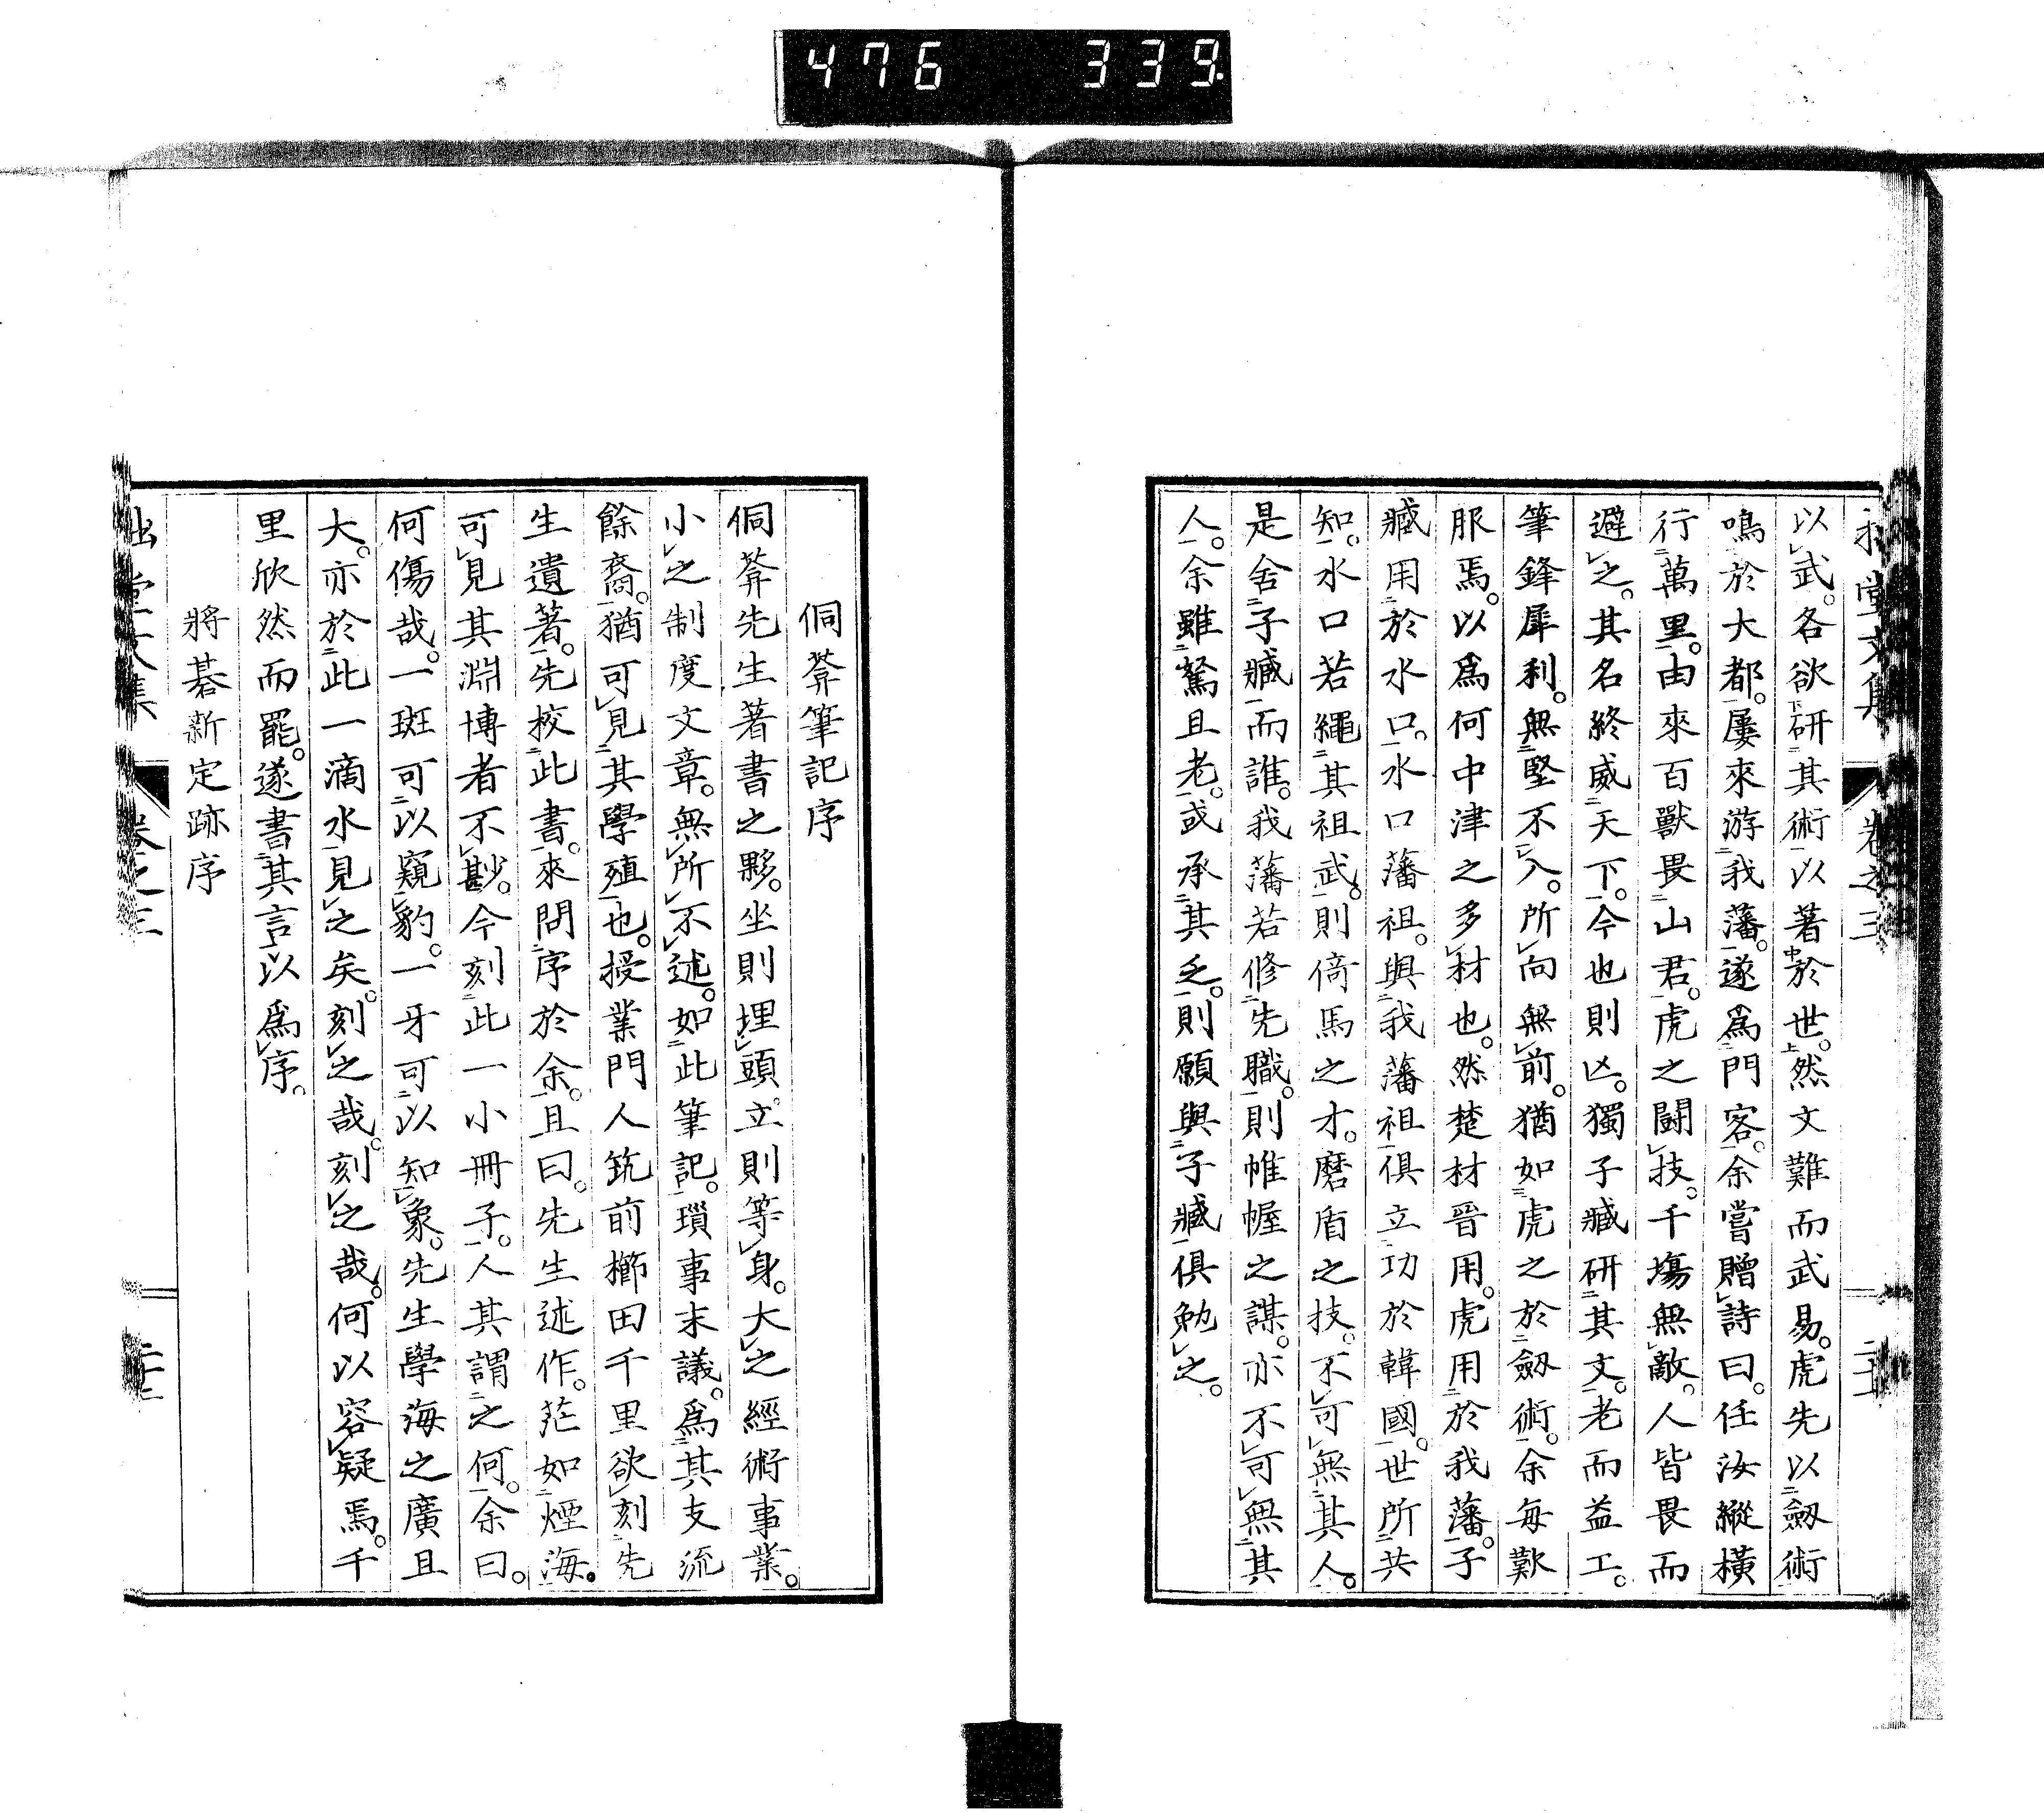 476 339
堂文集 卷之三
以武。各欲研其術以著於世。然文難而武易。虎先以劔術
鳴於大都。屢來游我藩。遂爲門客。余嘗贈詩曰。任汝縱橫
行萬里。由來百獸畏山君。虎之鬪技。千塲無敵。人皆畏而
避之。其名終威天下。今也則亡。獨子臧研其文。老而益工。
筆鋒犀利。無堅不入。所向無前。猶如虎之於劔術。余每歎
服焉。以爲何中津之多材也。然楚材晉用。虎用於我藩。子
臧用於水口。水口藩祖。與我藩祖俱立功於韓國。世所共
知。水口若繩其祖武。則倚馬之才。磨盾之技。不可無其人。
是舍子臧而誰。我藩若修先職。則帷幄之謀。亦不可無其
人。余雖駑且老。或承其乏。則願與子臧俱勉之。
侗菴筆記序
侗菴先生著書之夥。坐則埋頭。立則等身。大之經術事業。
小之制度文章。無所不述。如此筆記。瑣事末議。爲其支流
餘裔。猶可見其學殖也。授業門人筑前櫛田千里欲刻先
生遺著。先校此書。來問序於余。且曰。先生述作。茫如煙海。
可見其淵博者不尠。今刻此一小冊子。人其謂之何。余曰。
何傷哉。一斑可以窺豹。一牙可以知象。先生學海之廣且
大。亦於此一滴水見之矣。刻之哉。刻之哉。何以容疑焉。千
里欣然而罷。遂書其言以爲序。
將碁新定跡序
堂文集 卷之三